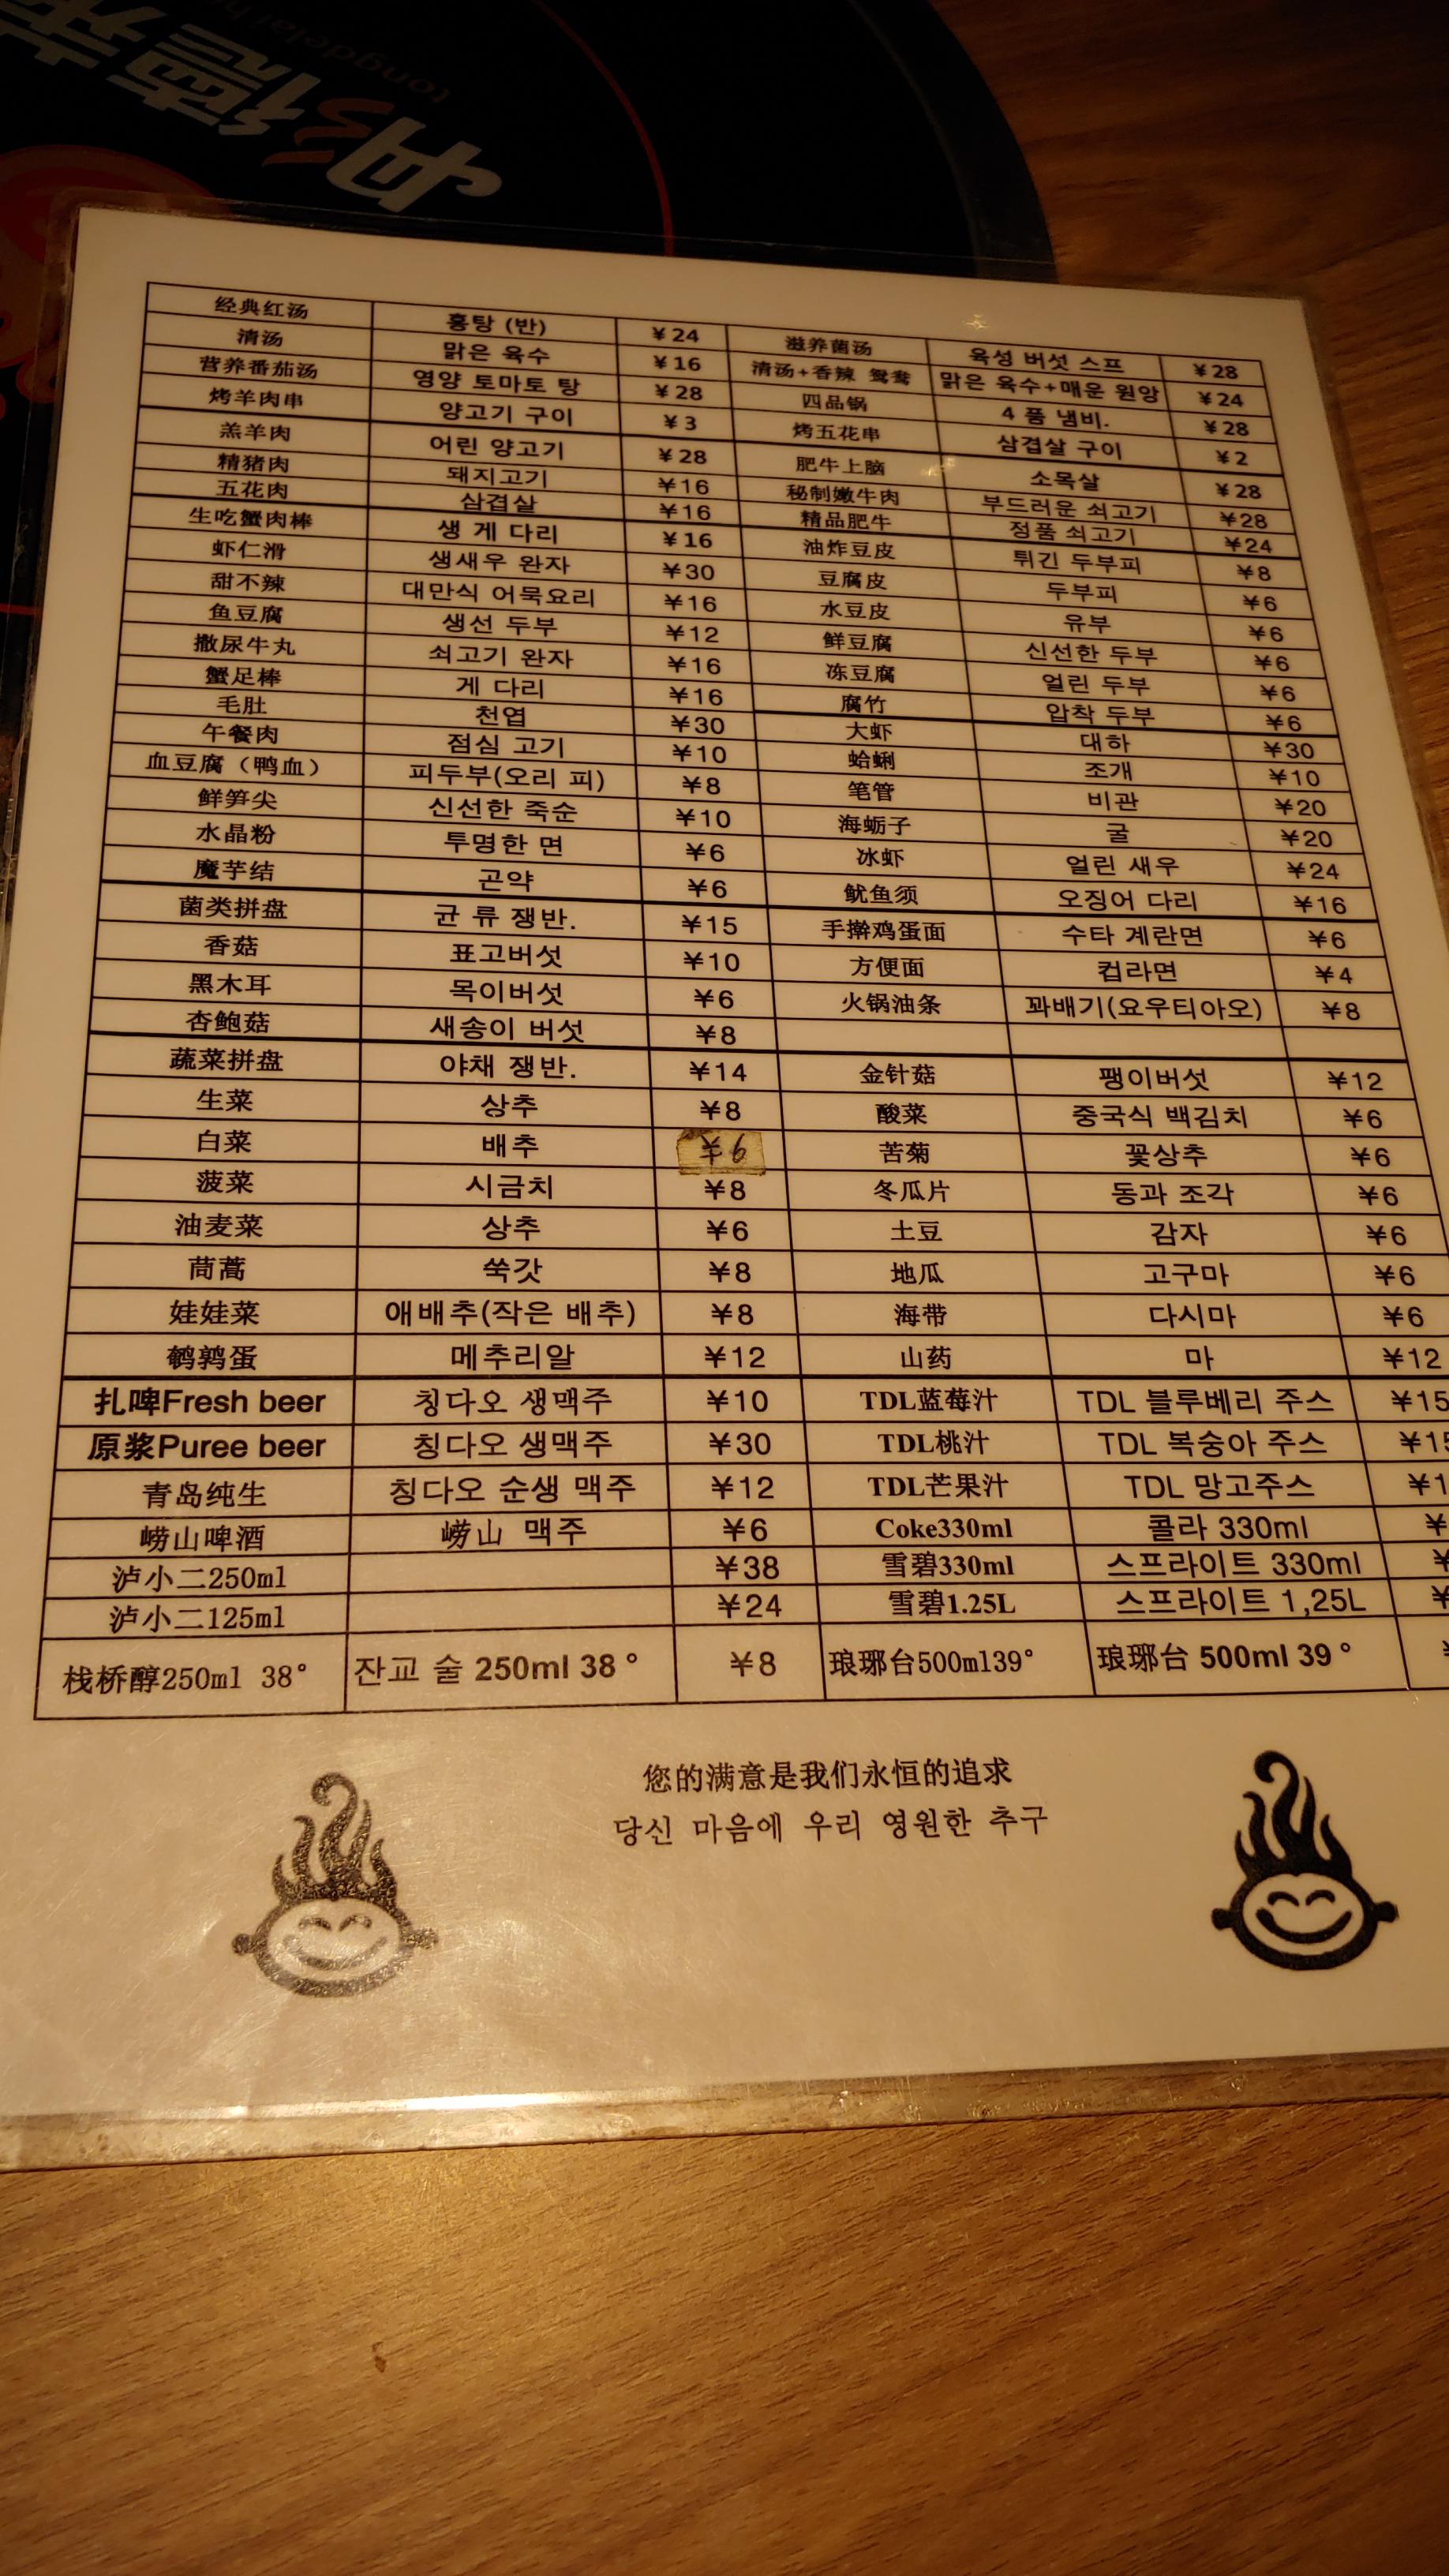 彤德莱
tongdelai
经典红汤 홍탕 (반) ￥24 滋养菌汤 육성 버섯 스프 ￥28
清汤 맑은 육수 ￥16 清汤+香辣 鸳鸯 맑은 육수+매운 원앙 ￥24
营养番茄汤 영양 토마토 탕 ￥28 四品锅 4 품 냄비. ￥28
烤羊肉串 양고기 구이 ￥3 烤五花串 삼겹살 구이 ￥2
羔羊肉 어린 양고기 ￥28 肥牛上脑 소목살 ￥28
精猪肉 돼지고기 ￥16 秘制嫩牛肉 부드러운 쇠고기 ￥28
五花肉 삼겹살 ￥16 精品肥牛 정품 쇠고기 ￥24
生吃蟹肉棒 생 게 다리 ￥16 油炸豆皮 튀긴 두부피 ￥8
虾仁滑 생새우 완자 ￥30 豆腐皮 두부피 ￥6
甜不辣 대만식 어묵요리 ￥16 水豆皮 유부 ￥6
鱼豆腐 생선 두부 ￥12 鲜豆腐 신선한 두부 ￥6
撒尿牛丸 쇠고기 완자 ￥16 冻豆腐 얼린 두부 ￥6
蟹足棒 게 다리 ￥16 腐竹 압착 두부 ￥6
毛肚 천엽 ￥30 大虾 대하 ￥30
午餐肉 점심 고기 ￥10 蛤蜊 조개 ￥10
血豆腐（鸭血） 피두부(오리 피) ￥8 笔管 비관 ￥20
鲜笋尖 신선한 죽순 ￥10 海蛎子 굴 ￥20
水晶粉 투명한 면 ￥6 冰虾 얼린 새우 ￥24
魔芋结 곤약 ￥6 鱿鱼须 오징어 다리 ￥16
菌类拼盘 균 류 쟁반. ￥15 手擀鸡蛋面 수타 계란면 ￥6
香菇 표고버섯 ￥10 方便面 컵라면 ￥4
黑木耳 목이버섯 ￥6 火锅油条 꽈배기(요우티아오) ￥8
杏鲍菇 새송이 버섯 ￥8
蔬菜拼盘 야채 쟁반. ￥14 金针菇 팽이버섯 ￥12
生菜 상추 ￥8 酸菜 중국식 백김치 ￥6
白菜 배추 ￥6 苦菊 꽃상추 ￥6
菠菜 시금치 ￥8 冬瓜片 동과 조각 ￥6
油麦菜 상추 ￥6 土豆 감자 ￥6
茼蒿 쑥갓 ￥8 地瓜 고구마 ￥6
娃娃菜 애배추(작은 배추) ￥8 海带 다시마 ￥6
鹌鹑蛋 메추리알 ￥12 山药 마 ￥12
扎啤Fresh beer 칭다오 생맥주 ￥10 TDL蓝莓汁 TDL 블루베리 주스 ￥15
原浆Puree beer 칭다오 생맥주 ￥30 TDL桃汁 TDL 복숭아 주스 ￥15
青岛纯生 칭다오 순생 맥주 ￥12 TDL芒果汁 TDL 망고주스 ￥1
崂山啤酒 崂山 맥주 ￥6 Coke330ml 콜라 330ml ￥
泸小二250ml ￥38 雪碧330ml 스프라이트 330ml ￥
泸小二125ml ￥24 雪碧1.25L 스프라이트 1,25L ￥
栈桥醇250ml 38° 잔교 술 250ml 38 ° ￥8 琅琊台500ml39° 琅琊台 500ml 39 °
您的满意是我们永恒的追求
당신 마음에 우리 영원한 추구